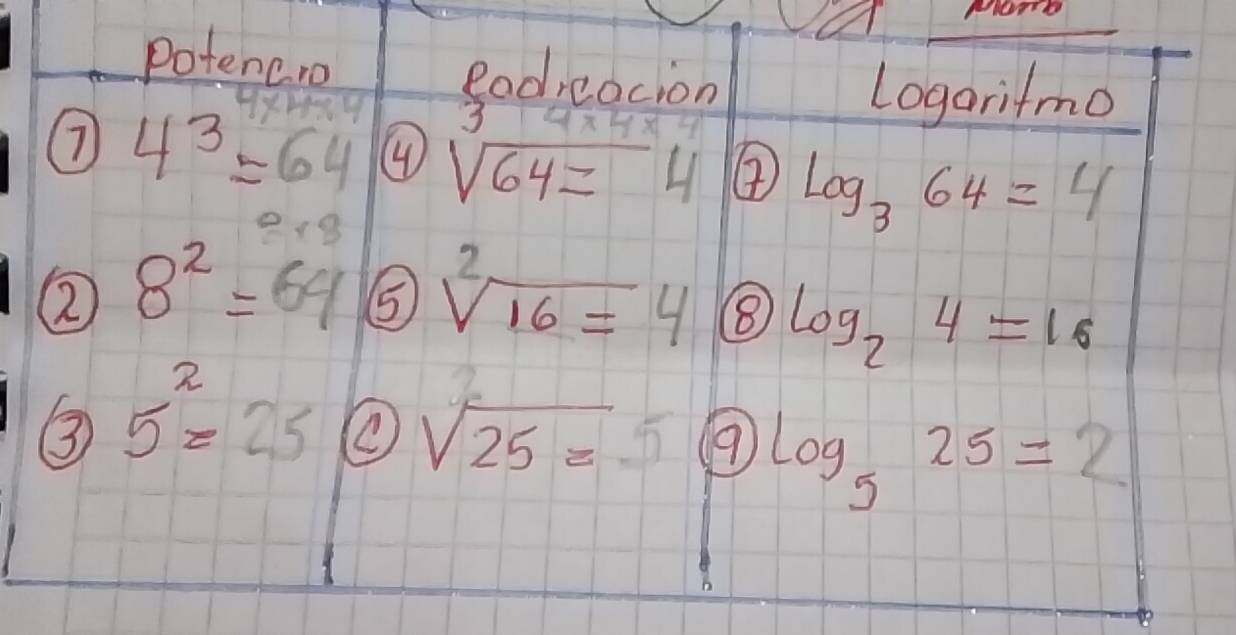 Mamá
Potencia Radicación Logaritmo
4×4×4 4×4×4
① 4³ = 64 ④ ³√64 = 4 ⑦ Log₃ 64 = 4
8×8
② 8² = 64 ⑤ ²√16 = 4 ⑧ Log₂ 4 = 16
③ 5² = 25 ⑥ ²√25 = 5 ⑨ Log₅ 25 = 2